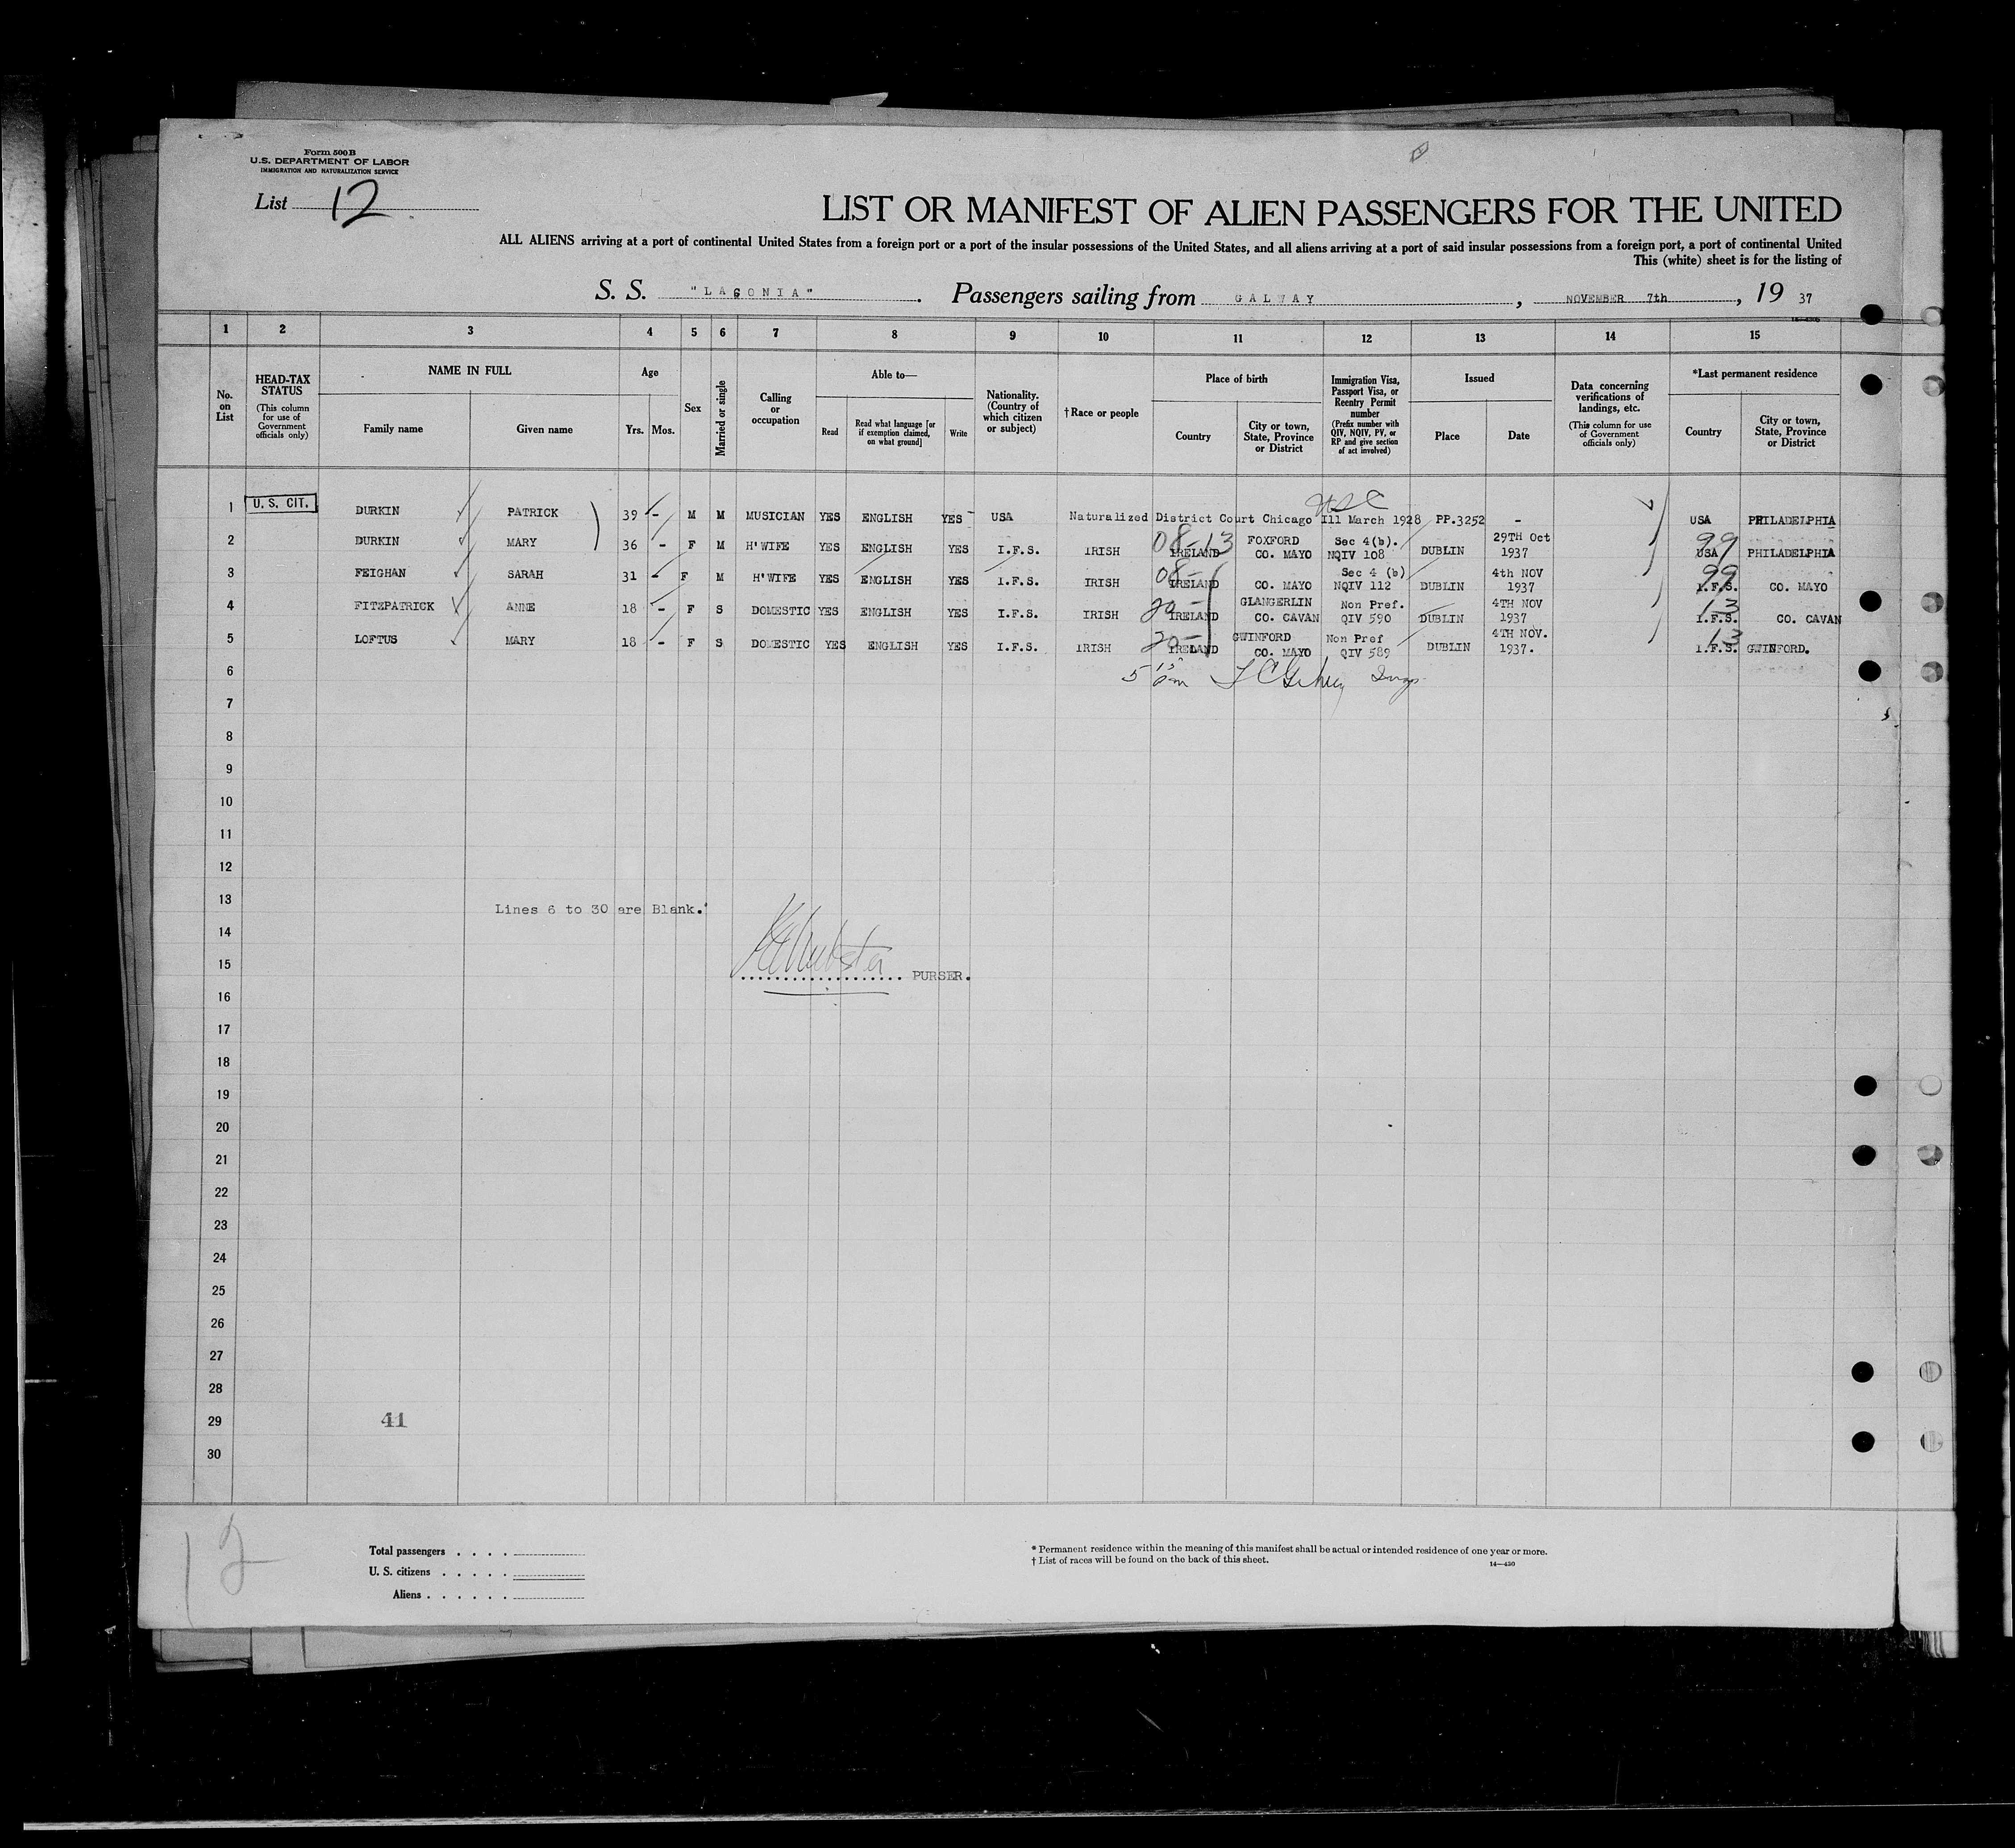 Form 500B
U.S. DEPARTMENT OF LABOR
IMMIGRATION AND NATURALIZATION SERVICE
List 12
LIST OR MANIFEST OF ALIEN PASSENGERS FOR THE UNITED
ALL ALIENS arriving at a port of continental United States from a foreign port or a port of the insular possessions of the United States, and all aliens arriving at a port of said insular possessions from a foreign port, a port of continental United
This (white) sheet is for the listing of
S. S. "LACONIA". Passengers sailing from GALWAY, NOVEMBER 7th, 19 37
1 2 3 4 5 6 7 8 9 10 11 12 13 14 15
No. on List
HEAD-TAX STATUS (This column for use of Government officials only)
NAME IN FULL
Family name Given name
Age
Yrs. Mos.
Sex
Married or single
Calling or occupation
Able to—
Read Read what language [or if exemption claimed, on what ground] Write
Nationality. (Country of which citizen or subject)
†Race or people
Place of birth
Country City or town, State, Province or District
Immigration Visa, Passport Visa, or Reentry Permit number (Prefix number with QIV, NQIV, PV, or RP and give section of act involved)
Issued
Place Date
Data concerning verifications of landings, etc. (This column for use of Government officials only)
*Last permanent residence
Country City or town, State, Province or District
USC
1 U. S. CIT. DURKIN PATRICK 39 - M M MUSICIAN YES ENGLISH YES USA Naturalized District Court Chicago Ill March 1928 PP.3252 - USA PHILADELPHIA
08-13 99
2 DURKIN MARY 36 - F M H'WIFE YES ENGLISH YES I.F.S. IRISH IRELAND FOXFORD CO. MAYO Sec 4(b). NQIV 108 DUBLIN 29TH Oct 1937 USA PHILADELPHIA
08- 99
3 FEIGHAN SARAH 31 - F M H'WIFE YES ENGLISH YES I.F.S. IRISH IRELAND CO. MAYO Sec 4 (b) NQIV 112 DUBLIN 4th NOV 1937 I.F.S. CO. MAYO
20- 13
4 FITZPATRICK ANNE 18 - F S DOMESTIC YES ENGLISH YES I.F.S. IRISH IRELAND GLANGERLIN CO. CAVAN Non Pref. QIV 590 DUBLIN 4TH NOV 1937 I.F.S. CO. CAVAN
20- 13
5 LOFTUS MARY 18 - F S DOMESTIC YES ENGLISH YES I.F.S. IRISH IRELAND GWINFORD CO. MAYO Non Pref QIV 589 DUBLIN 4TH NOV. 1937. I.F.S. GWINFORD.
6
7
8
9
10
11
12
13
Lines 6 to 30 are Blank.
14
15
PURSER.
16
17
18
19
20
21
22
23
24
25
26
27
28
29 41
30
12
Total passengers
U. S. citizens
Aliens
* Permanent residence within the meaning of this manifest shall be actual or intended residence of one year or more.
† List of races will be found on the back of this sheet.
14—430